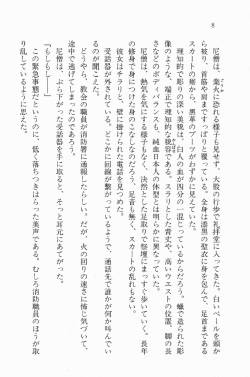 8
尼僧は、業火に恐れる様子も見せず、大股の行歩で礼拝堂に入ってきた。白いベールを頭か
ら被り、首筋や肩まですっぽりと覆っている。全身は漆黒の聖衣に身を包んで、足首まである
スカートの裾からは、黒革のブーツがわずかに見えていた。
理知的で彫りの深い美貌は、白人の血が四分の一混じっているからだろう。蠟で造られた彫
さなどのボディバランスも、純血日本人の体型とは明らかに異なっていた。
尼僧は、熱気を気にする様子もなく、決然とした足取りで祭壇にまっすぐ歩いていく。長年
の修身で身につけた身のこなしなのだろう、足音も無く、スカートの乱れもない。
彼女はチラリと、壁に掛けられた電話を見つめた。
受話器が外されている。どこかに回線が繋がっていて、通話先で誰かが何か叫んでい
るのが聞こえた。
おそらく、教会の職員が消防署に通報したらしい。だが、火の回りの速さに怖じ気づいて、
途中で逃げてしまったのであろう。
尼僧は、ぶら下がった受話器を手に取ると、そっと耳元にあてがった。
「もしもし――」
この緊急事態だというのに、低く落ちつきはらった美声である。むしろ消防職員のほうが取
り乱しているように思えた。